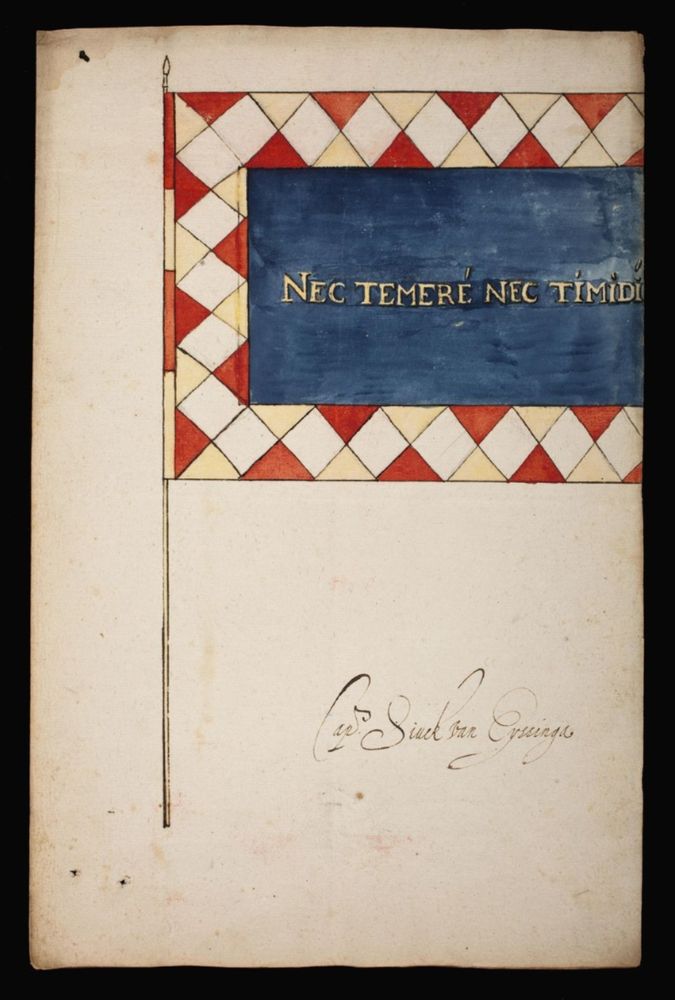 NEC TEMERÉ NEC TÍMÍDÍ
Capn. Siuck van Eyssinga